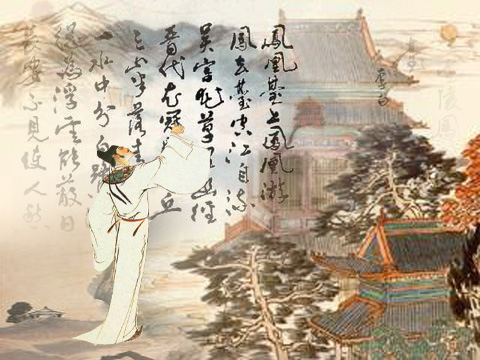 李白
鳳凰臺上鳳凰遊
鳳去臺空江自流
吳宮花草幽徑
晉代衣冠丘
三山半落青
一水中分白鷺
總為浮雲能蔽日
長安不見使人愁